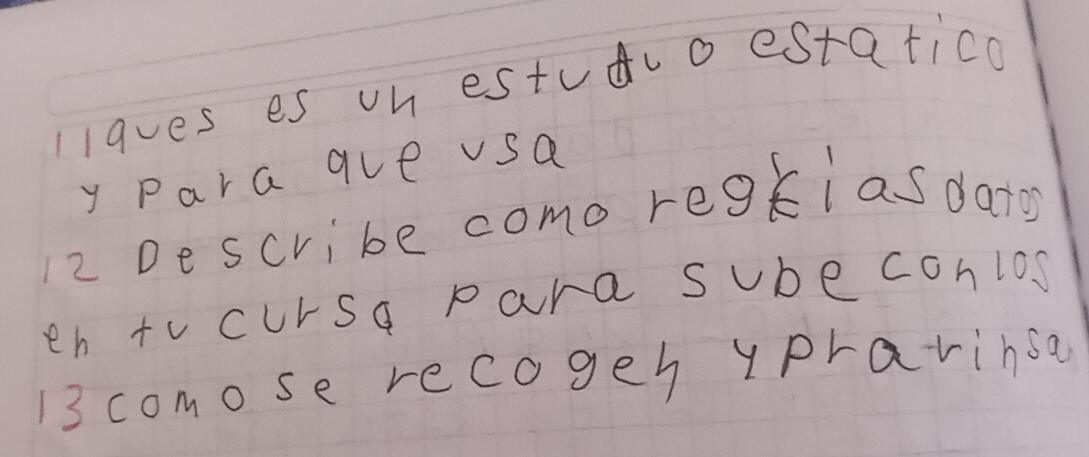 11 ques es un estudio estatico
y para que usa
12 Describe como regkias datos
en tu cursa para sube con los
13 como se recogen y prarinsa